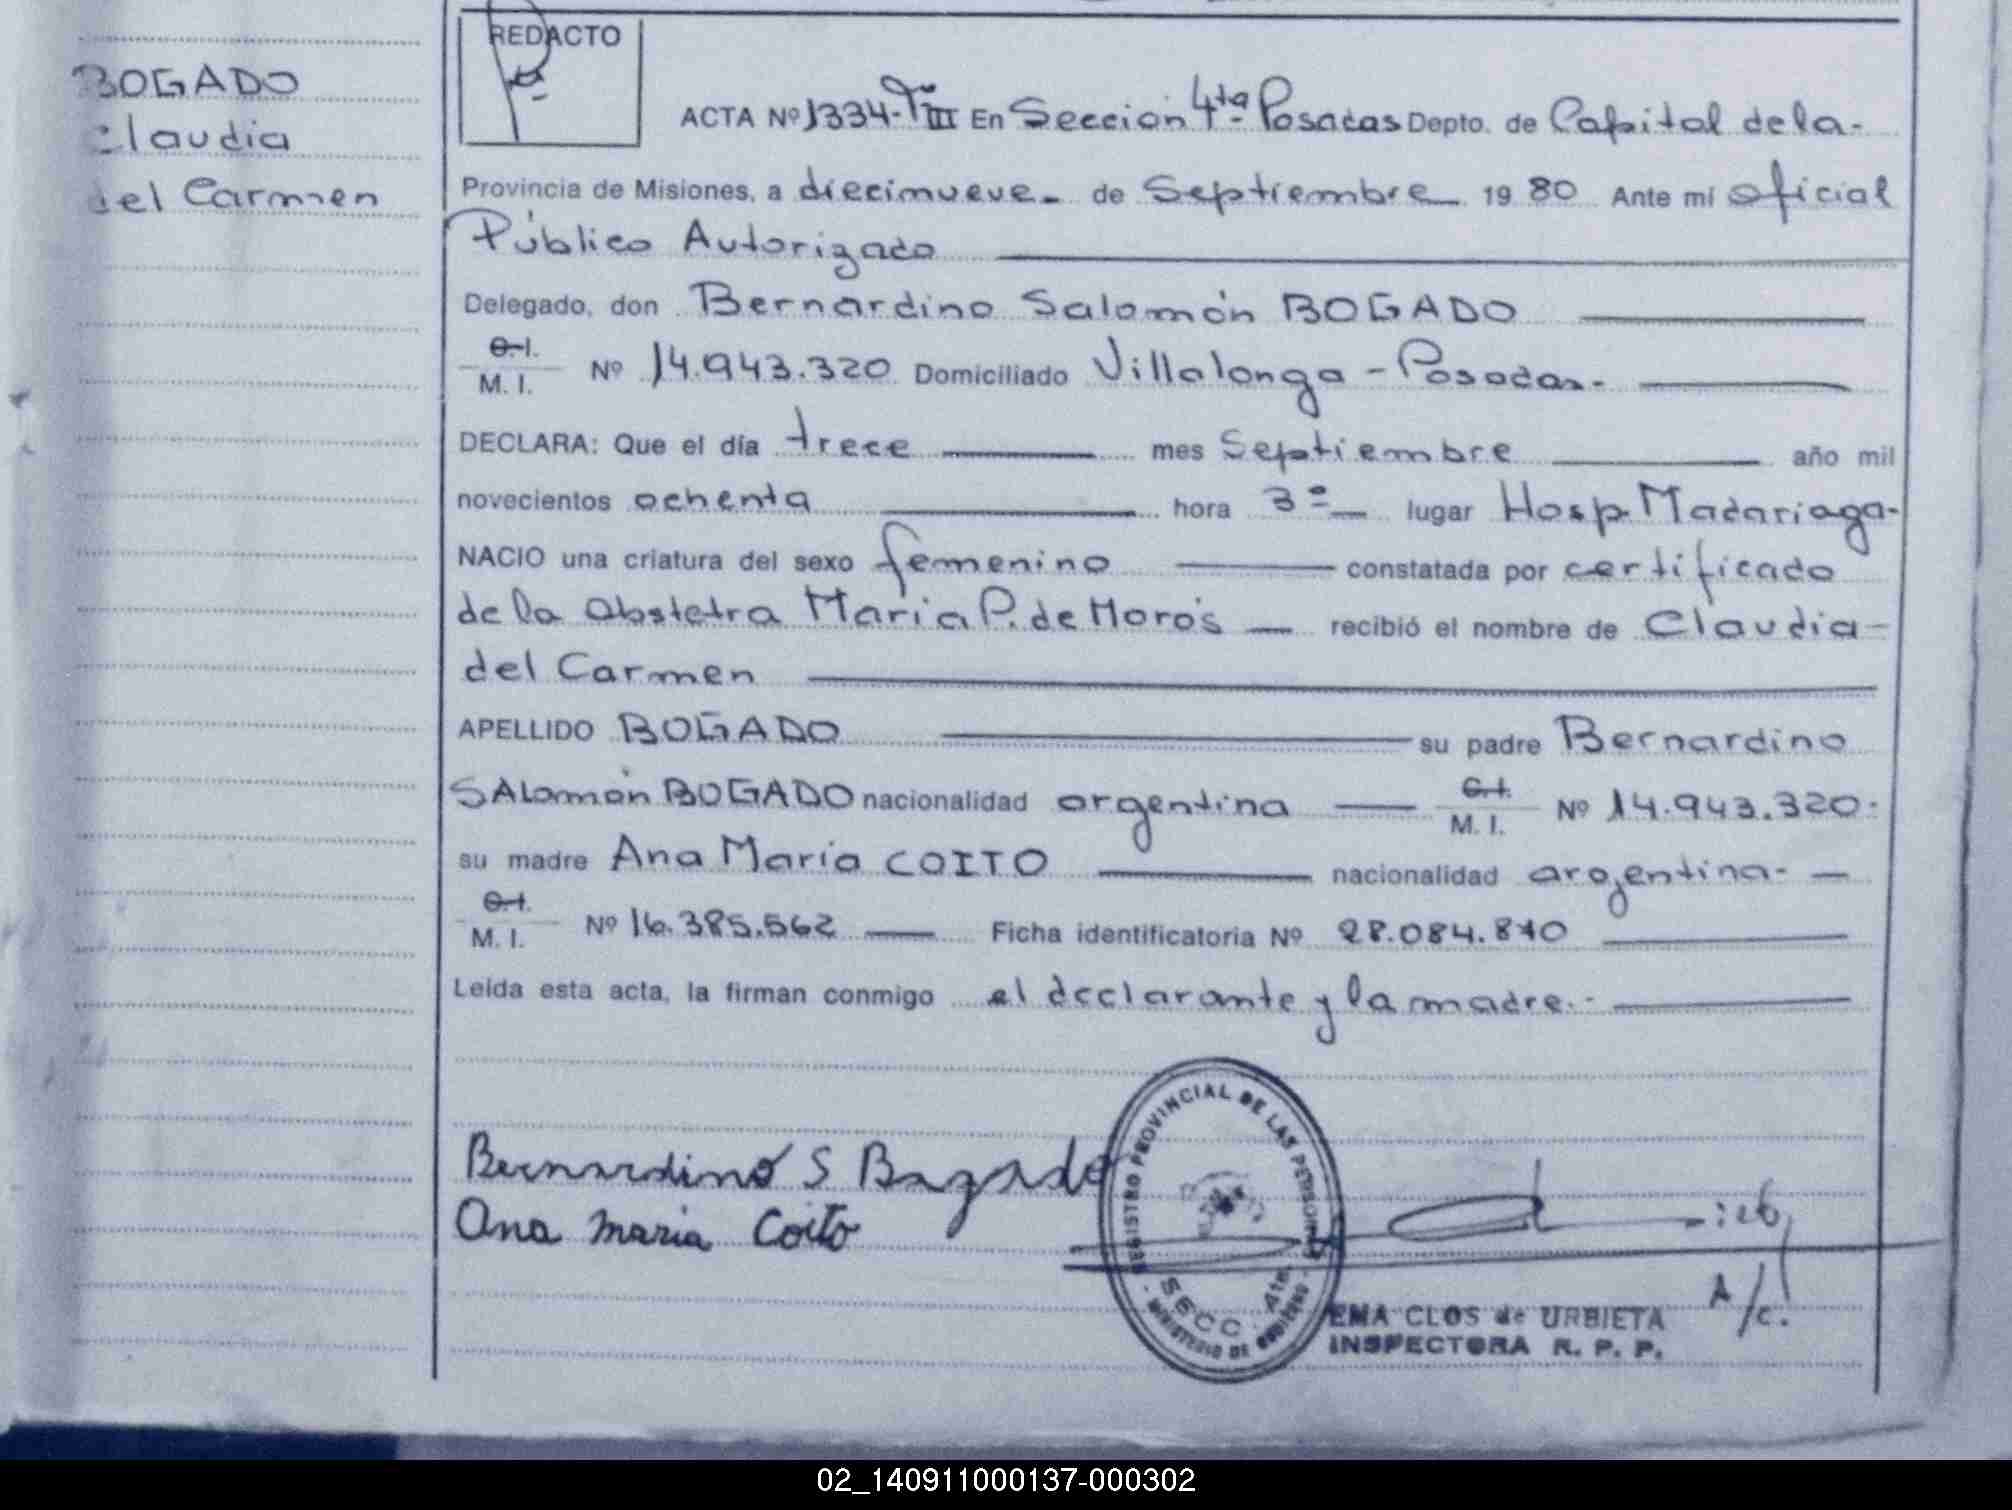 BOGADO
Claudia
del Carmen
REDACTO
ACTA Nº 1334-TºIII En Sección 4ta- Posadas Depto. de Capital de la-
Provincia de Misiones, a diecinueve- de Septiembre 19 80 Ante mí oficial
Público Autorizado
Delegado, don Bernardino Salomón BOGADO
C.I.
M. I. Nº 14.943.320 Domiciliado Villalonga - Posadas-
DECLARA: Que el día trece mes Septiembre año mil
novecientos ochenta hora 3º lugar Hosp. Madariaga-
NACIO una criatura del sexo femenino constatada por certificado
de la Obstetra María P. de Morós recibió el nombre de Claudia-
del Carmen
APELLIDO BOGADO su padre Bernardino
SAlomón BOGADO nacionalidad argentina C.I. M. I. Nº 14.943.320.
su madre Ana María COITO nacionalidad argentina-
C.I.
M. I. Nº 16.385.562 Ficha identificatoria Nº 28.084.810
Leída esta acta, la firman conmigo el declarante y la madre.-
Bernardino S Bogado
Ana maria Coito
REGISTRO PROVINCIAL DE LAS PERSONAS
SECC. 4ta.
MINISTERIO DE GOBIERNO
A/c.
EMA CLOS de URBIETA
INSPECTORA R. P. P.
02_140911000137-000302